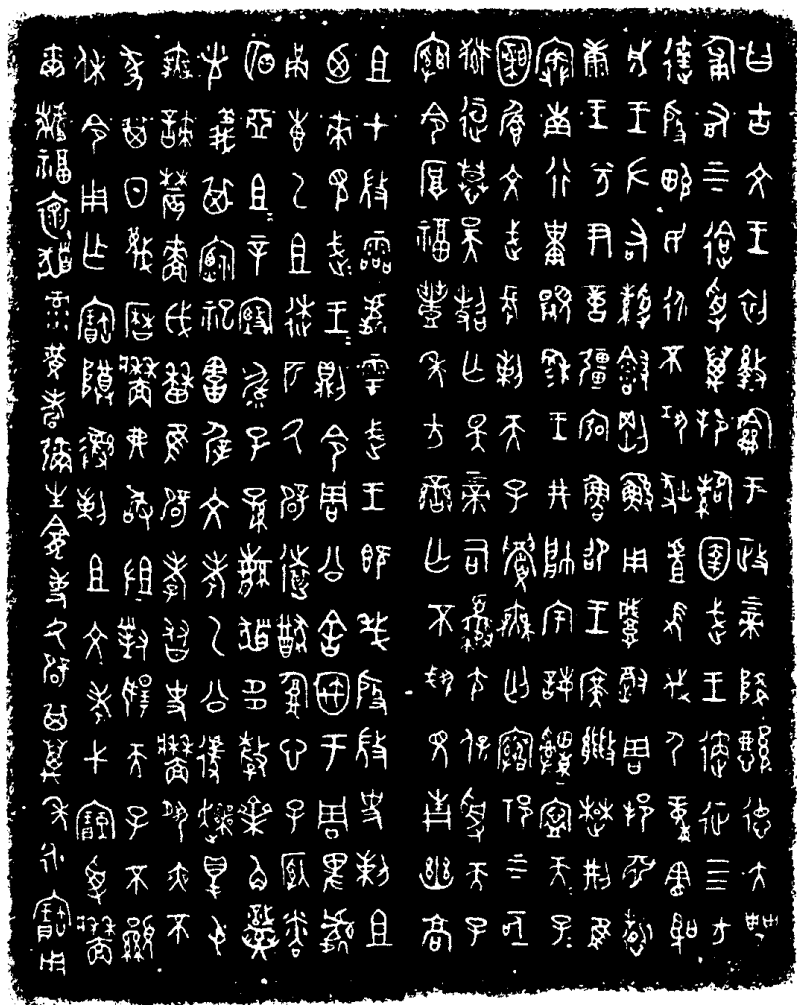 曰古文王初盭龢于政上帝降懿德大甹
匍有上下迨受萬邦䚄圉武王遹征四方
達殷畯民永不巩狄虘𢦏伐尸童憲聖
成王左右綬會剛鯀用肇徹周邦淵哲
康王兮尹億疆宖魯卲王廣能楚荊隹
寏南行祗景穆王井帥宇誨申寧天子
天子圝屖文武長剌天子眉無匄寋祁上下
亟獄逗慕昊照亡斁上帝司夒尢保受天子
綰令厚福豐年方蠻亡不𢦚見青幽高
且才微霝處雩武王既𢦏殷微史剌且
廼來見武王武王則令周公舍㝢于周卑處
甬叀乙且逨匹厥辟遠猷腹心子粦明
亞且且辛毓子孫繁猶多孷齊角熾光義
其禋祀害屖文考乙公遽爽得屯無
諫農穡戉曆隹辟孝友史墻夙夜不
墜其日蔑曆墻弗敢沮對揚天子不顯
休令用乍寶尊彝剌且文考弋寶受墻
爾福褱猶录黃耇彌生龕事厥辟其萬年永寶用